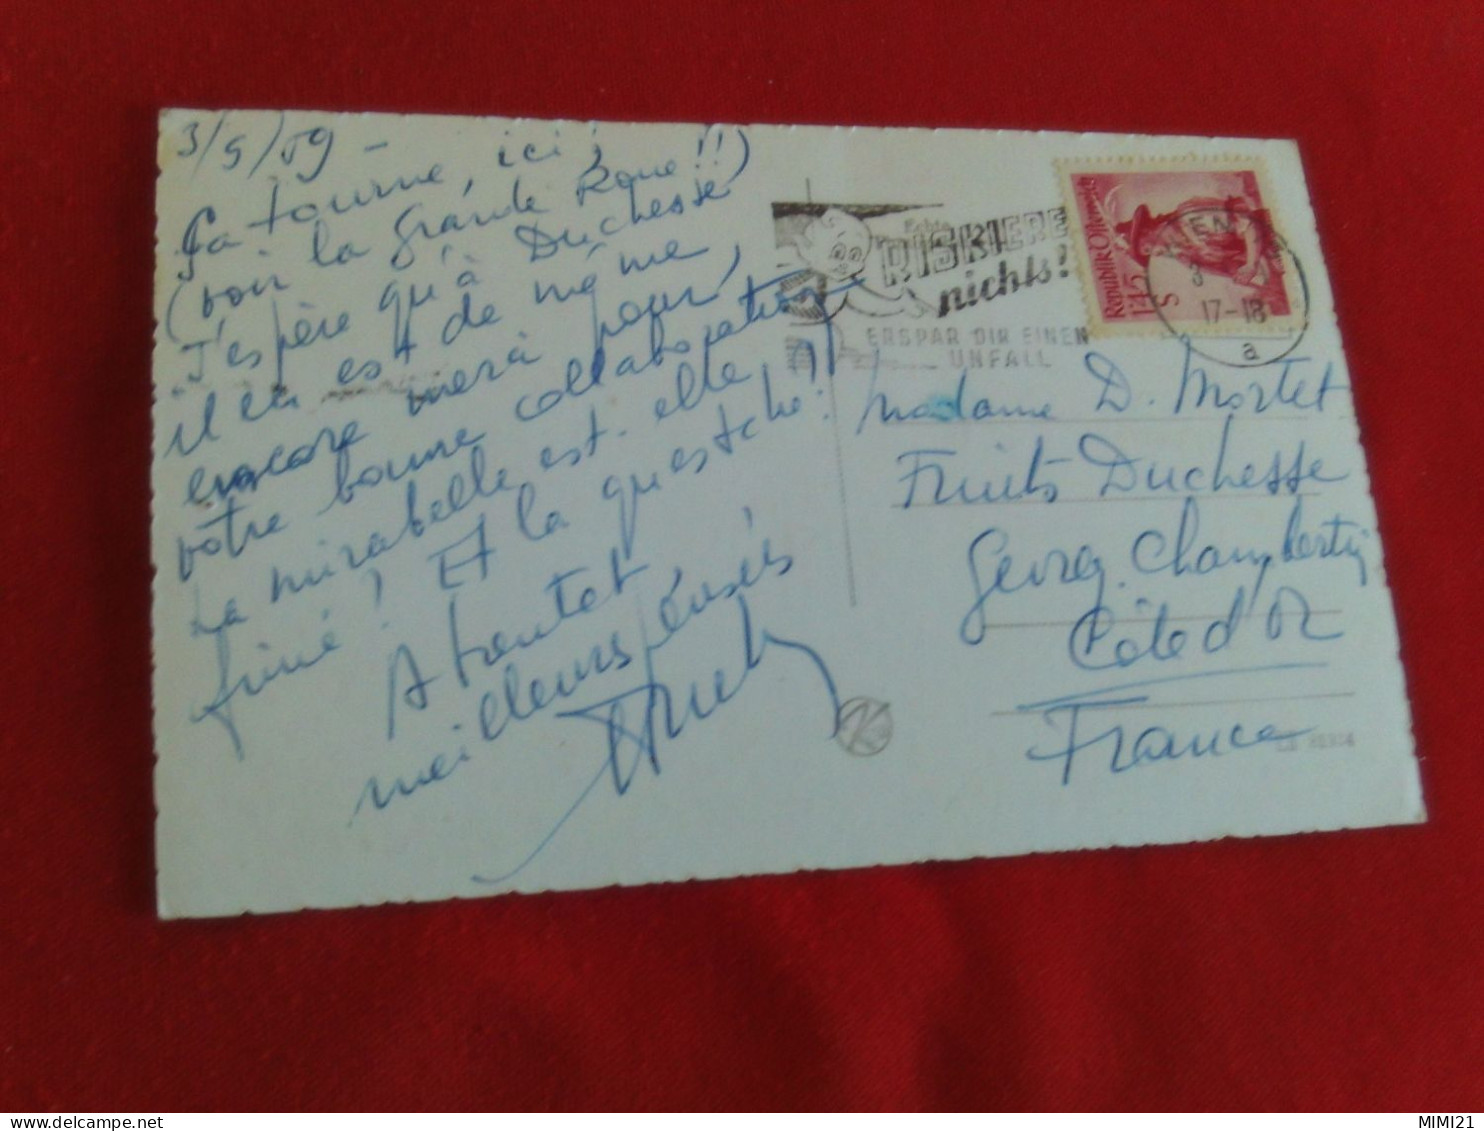 3/5/59 –
Ça tourne, ici !
(voir la grande Roue !!)
J'espère qu'à Duchesse
il en est de même
encore merci pour
votre bonne collaboration,
La mirabelle est-elle
finie ? Et la quetsche ?
A bientôt
meilleures pensées
RISKIERE
nichts!
ERSPAR DIR EINEN
UNFALL
REPUBLIK ÖSTERREICH
1'45
S
WIEN
17-18
a
Madame D. Mortet
Fruits Duchesse
Gevrey. Chambertin
Côte d'Or
France
K
MIMI21